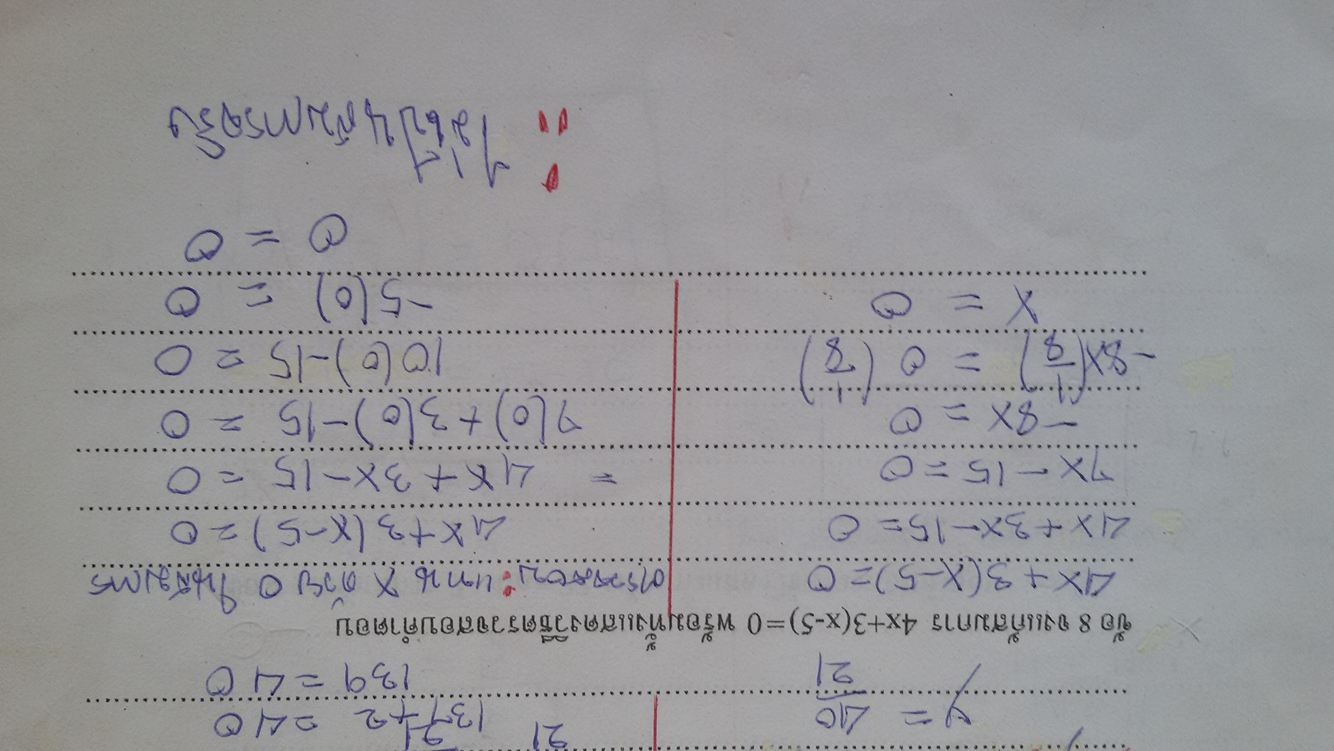 13 7/21 + 2 = 40
21
y = 40/21
139 = 40
ข้อ 8 จงแก้สมการ 4x+3(x-5)=0 พร้อมทั้งแสดงวิธีตรวจสอบคำตอบ
4x + 3(x-5) = 0
4x + 3x - 15 = 0
7x - 15 = 0
- 8x = 0
- 8x(1/8) = 0 (1/8)
x = 0
ตรวจสอบ : แทน x ด้วย 0 ในสมการ
4x + 3(x-5) = 0
= 4x + 3x - 15 = 0
7(0) + 3(0) - 15 = 0
10(0) - 15 = 0
-5(0) = 0
0 = 0
∴ 1 เป็นสมการจริง